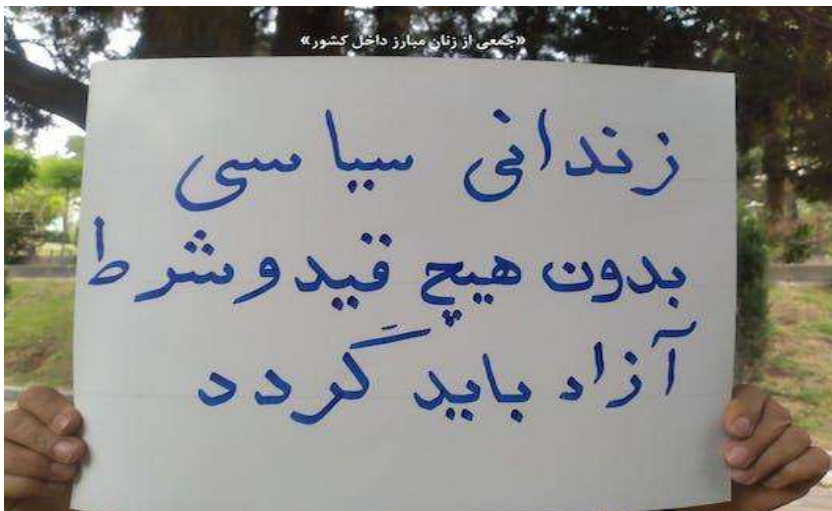 «جمعی از زنان مبارز داخل کشور»
زندانی سیاسی
بدون هیچ قید و شرط
آزاد باید گردد